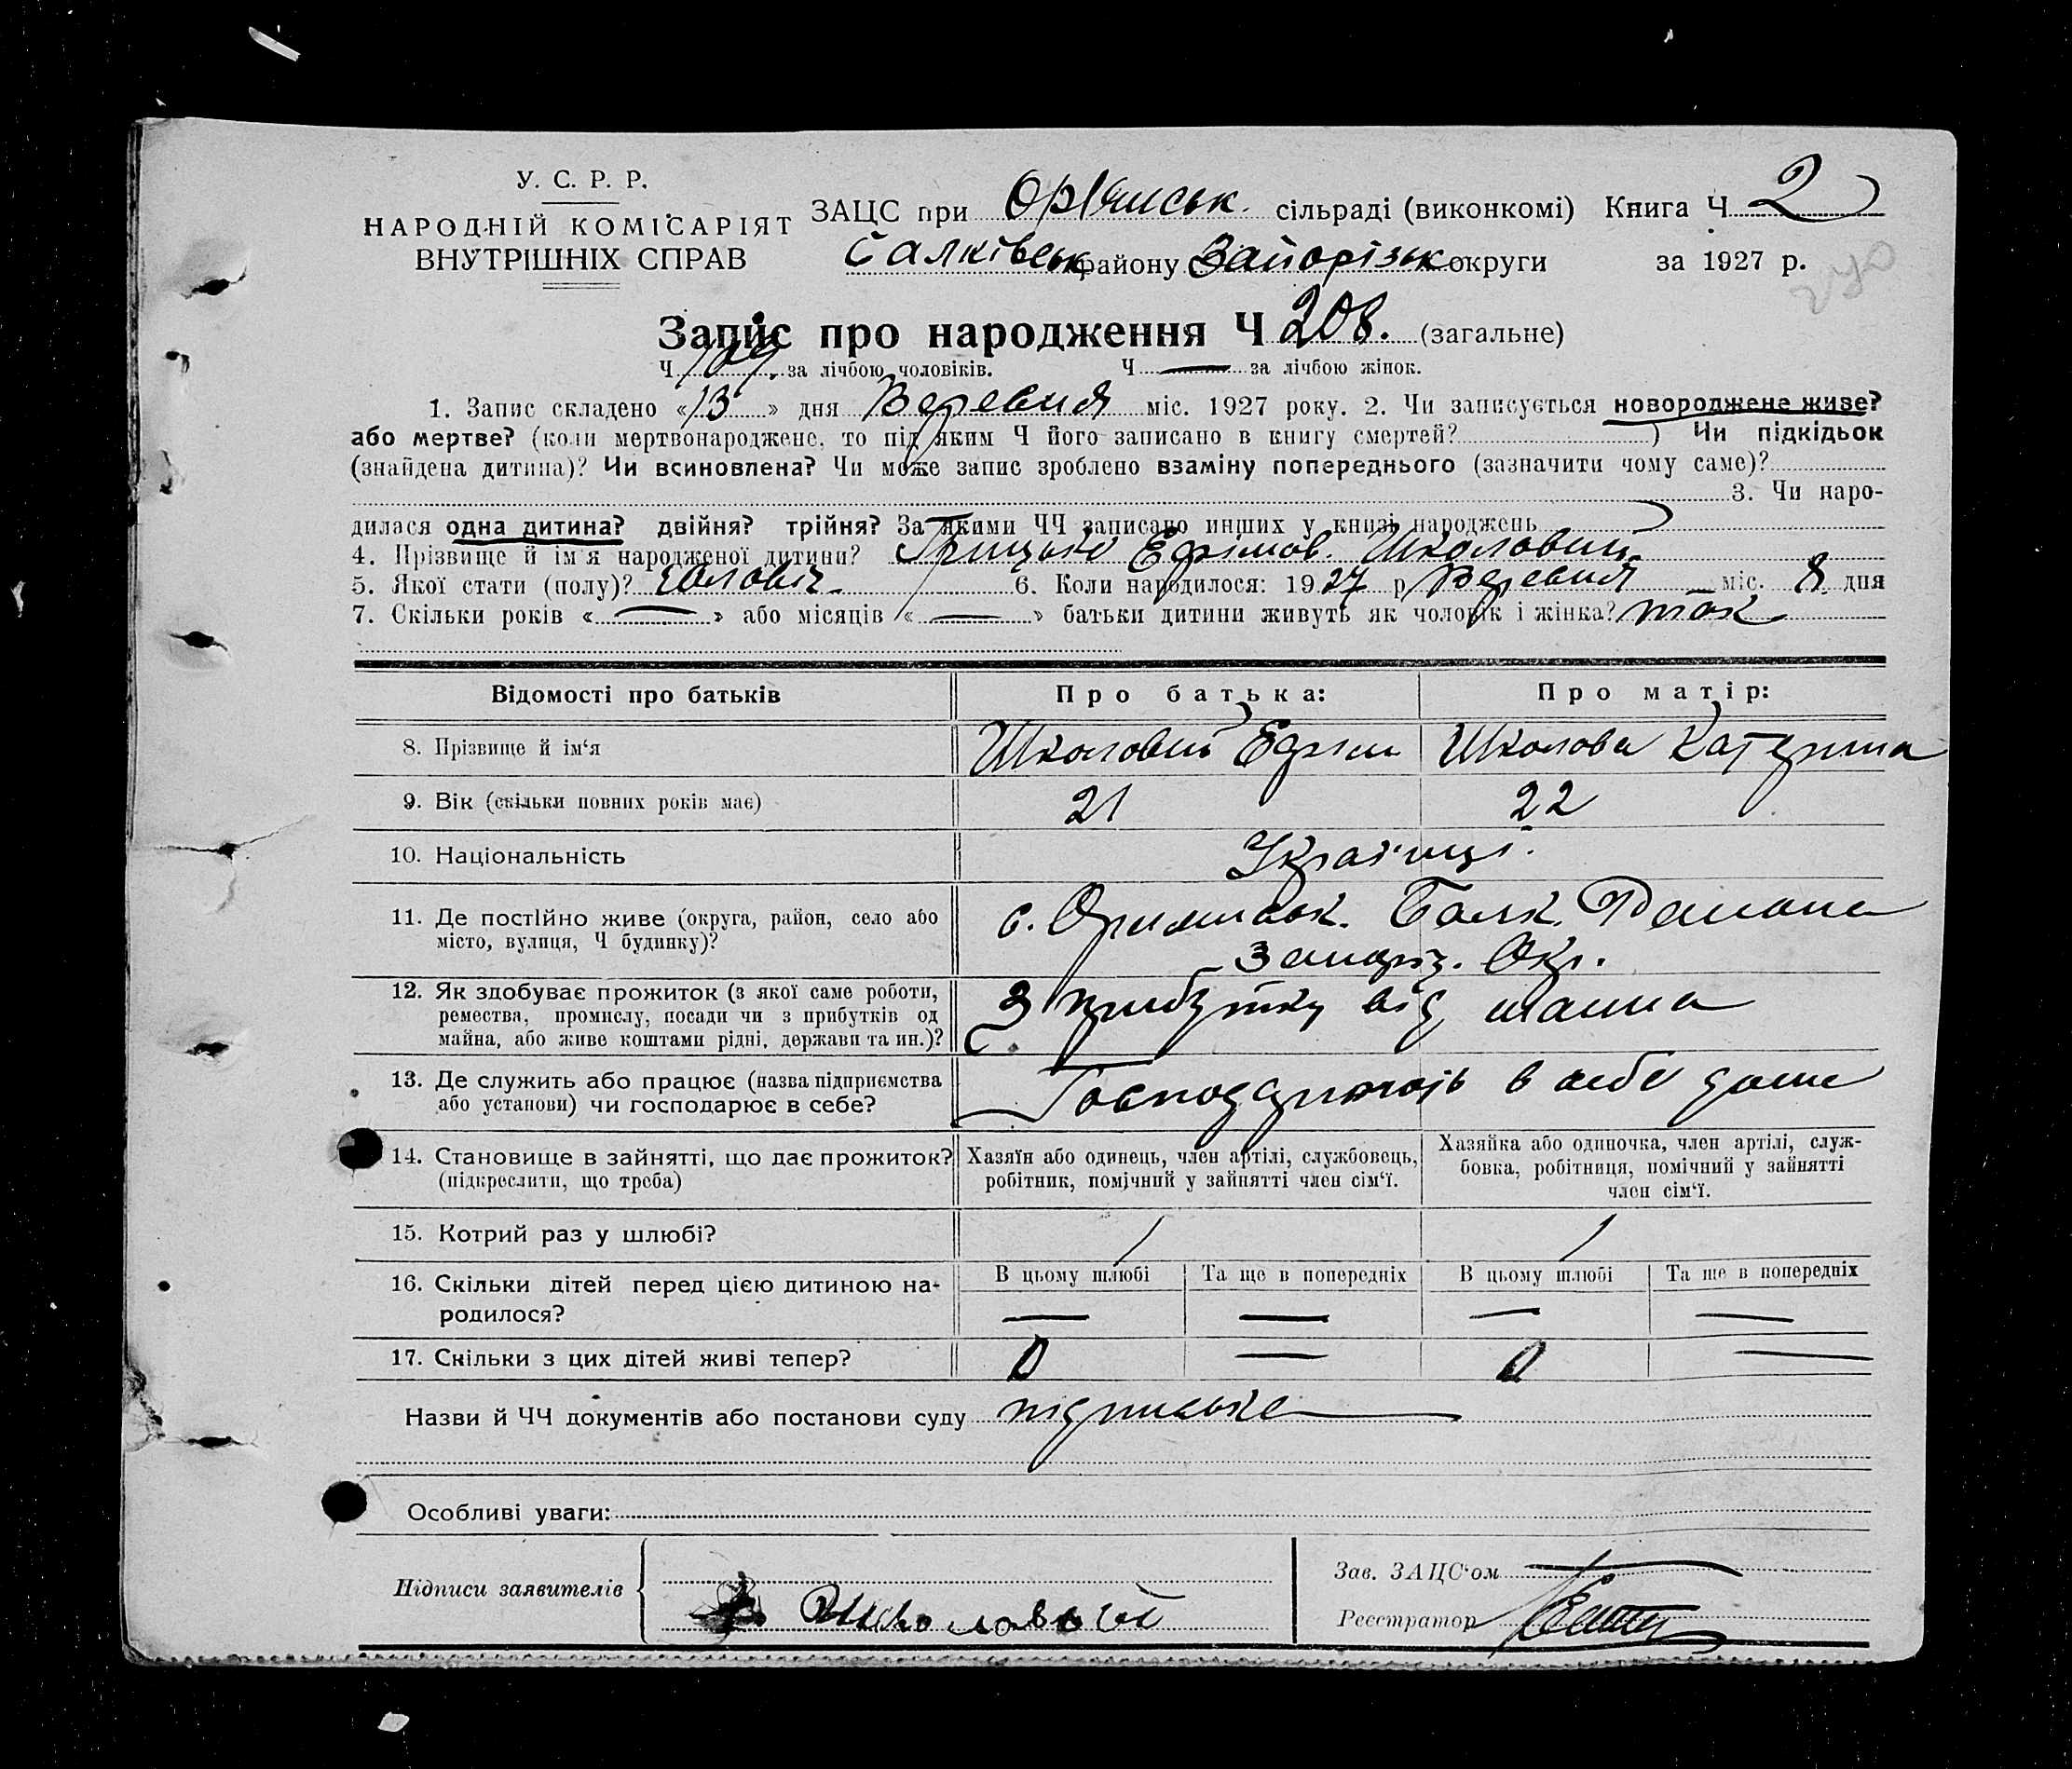 У. С. Р. Р.
НАРОДНІЙ КОМІСАРІЯТ
ВНУТРІШНІХ СПРАВ
ЗАЦС при Оріянськ. сільраді (виконкомі) Книга Ч 2
Балківськ району Запорізьк округи за 1927 р.
Запис про народження Ч 208. (загальне)
Ч 109. за лічбою чоловіків. Ч — за лічбою жінок.
1. Запис складено «13» дня Вересня міс. 1927 року. 2. Чи записується новороджене живе?
або мертве? (коли мертвонароджене, то під яким Ч його записано в книгу смертей? ) Чи підкідьок
(знайдена дитина)? Чи всиновлена? Чи може запис зроблено взаміну попереднього (зазначити чому саме)?
3. Чи наро-
дилася одна дитина? двійня? трійня? За якими ЧЧ записано инших у книзі народжень
4. Прізвище й ім'я народженої дитини? Грицько Ефімов. Школовий
5. Якої стати (полу)? чоловіч. 6. Коли народилося: 1927 р Вересня міс. 8 дня
7. Скільки років «—» або місяців «—» батьки дитини живуть як чоловік і жінка? так
Відомості про батьків Про батька: Про матір:
8. Прізвище й ім'я Школовий Ефим Школова Катерина
9. Вік (скільки повних років має) 21 22
10. Національність Українці.
11. Де постійно живе (округа, район, село або
місто, вулиця, Ч будинку)? с. Балк. Району
Запоріз. Окр.
12. Як здобуває прожиток (з якої саме роботи,
ремества, промислу, посади чи з прибутків од
майна, або живе коштами рідні, держави та ин.)? З прибутку від майна
13. Де служить або працює (назва підприємства
або установи) чи господарює в себе? Господарюють в себе дома
14. Становище в зайнятті, що дає прожиток?
(підкреслити, що треба)
Хазяїн або одинець, член артілі, службовець,
робітник, помічний у зайнятті член сім'ї.
Хазяйка або одиночка, член артілі, служ-
бовка, робітниця, помічний у зайнятті
член сім'ї.
15. Котрий раз у шлюбі? 1 1
16. Скільки дітей перед цією дитиною на-
родилося?
В цьому шлюбі Та ще в попередніх В цьому шлюбі Та ще в попередніх
— — — —
17. Скільки з цих дітей живі тепер? 0 — 0 —
Назви й ЧЧ документів або постанови суду підписька
Особливі уваги:
Підписи заявителів Школовой
Зав. ЗАЦС'ом
Реєстратор